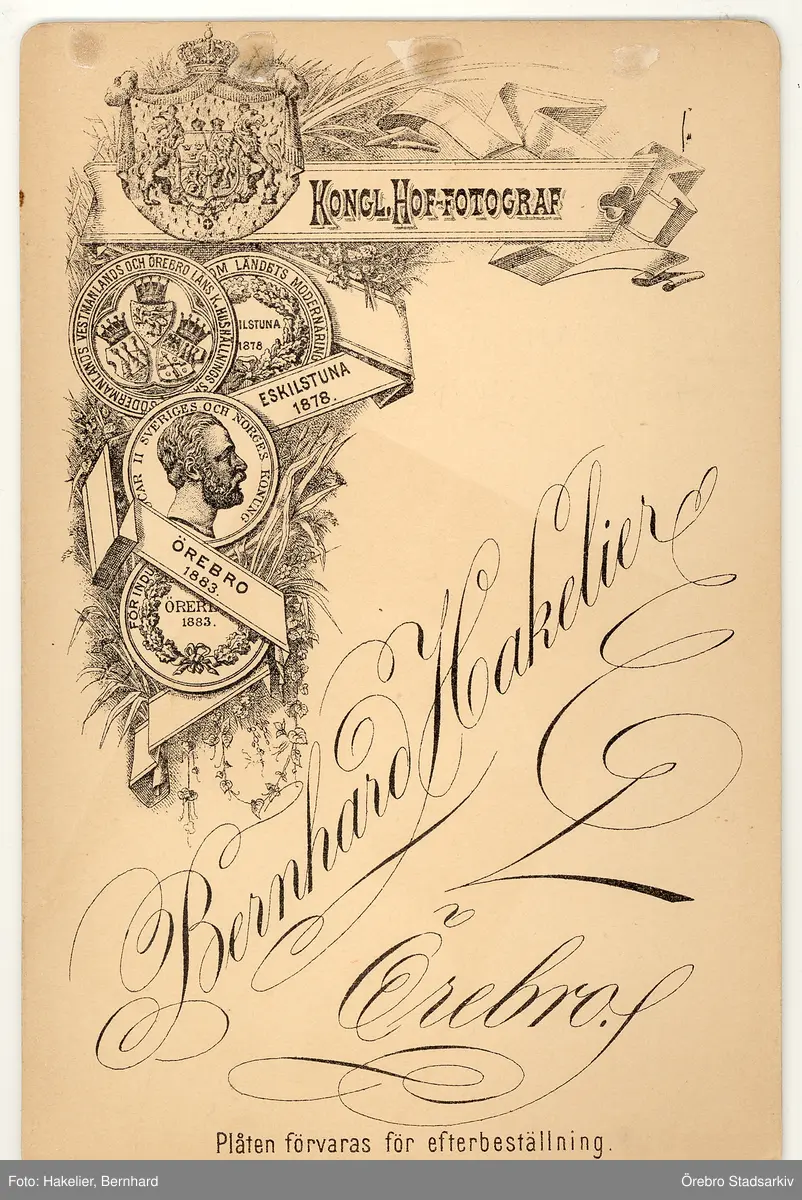 KONGL. HOF-FOTOGRAF
SÖDERMANLANDS VESTMANLANDS OCH ÖREBRO LÄNS K. HUSHÅLLNINGS
OM LANDETS MODERNÄRING
ILSTUNA
1878
ESKILSTUNA
1878.
CAR II SVERIGES OCH NORGES KONUNG
ÖREBRO
1883.
FÖR INDU
ÖRER
1883.
Bernhard Hakelier
Örebro.
Plåten förvaras för efterbeställning.
Foto: Hakelier, Bernhard
Örebro Stadsarkiv